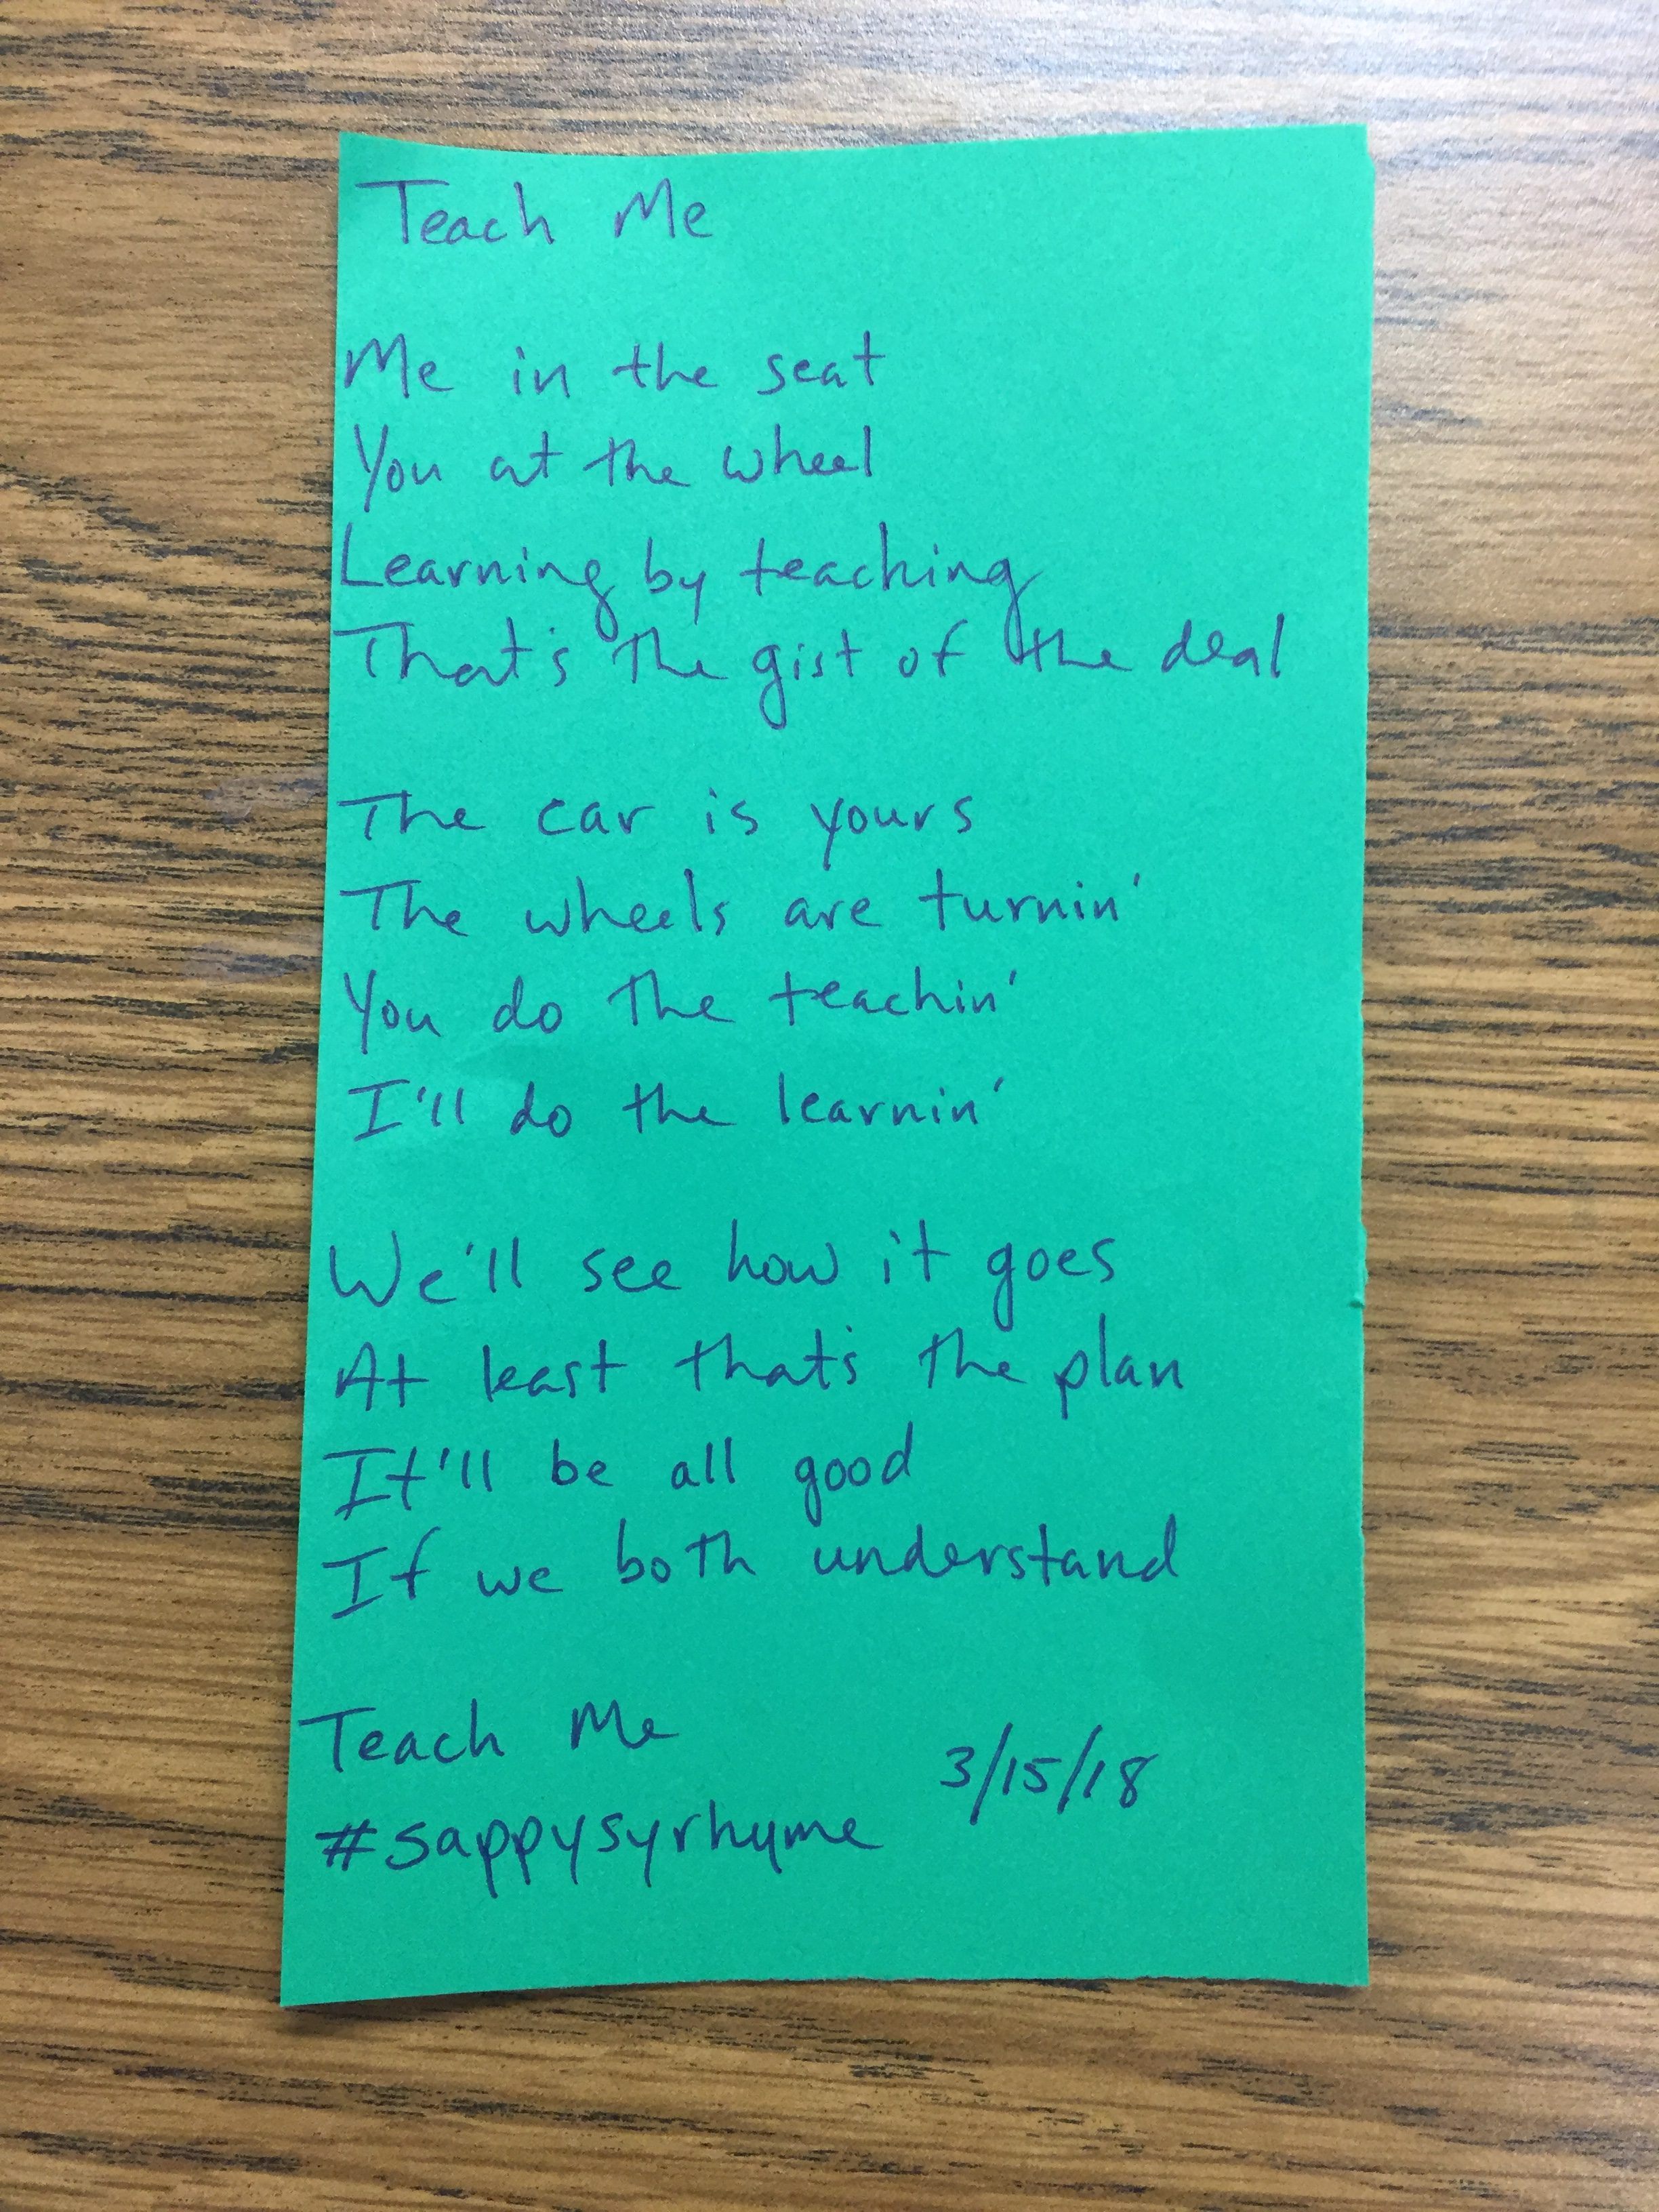 Teach Me
Me in the seat
You at the wheel
Learning by teaching
That's the gist of the deal
The car is yours
The wheels are turnin'
You do the teachin'
I'll do the learnin'
We'll see how it goes
At least that's the plan
It'll be all good
If we both understand
Teach Me
3/15/18
#sappysyrhyme